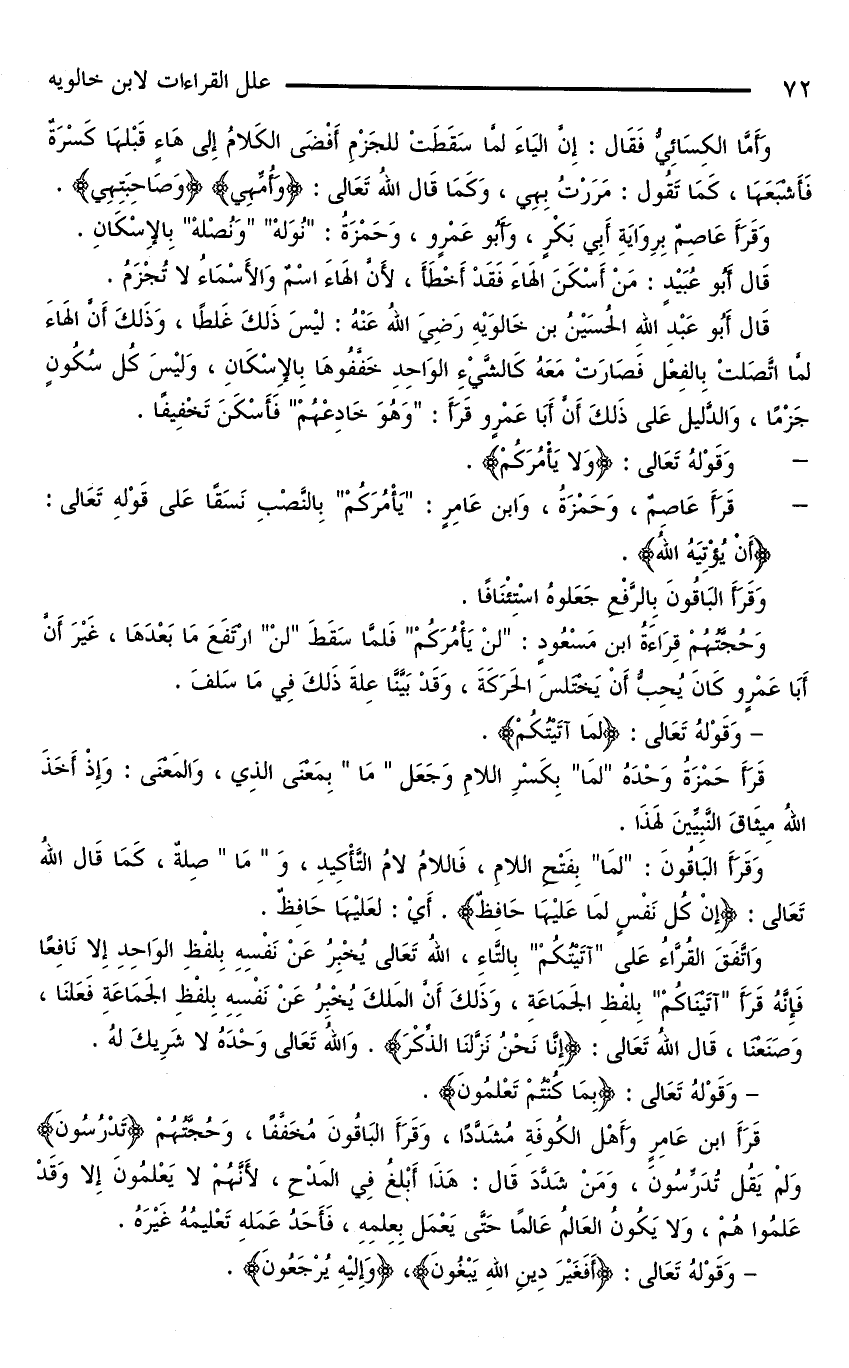 ٧٢ علل القراءات لابن خالويه
وَأَمَّا الكِسَائِيُّ فَقَال : إِنَّ اليَاءَ لمَّا سَقَطَتْ للجَزْمِ أَفْضَى الكَلامُ إِلى هَاءٍ قَبْلهَا كَسْرَةٌ
فَأَشْبَعَهَا ، كَمَا تَقُول : مَرَرْتُ بِهِي ، وَكَمَا قَال اللهُ تَعَالى : ﴿وَأُمِّهِي﴾ ﴿وَصَاحِبَتِهِي﴾ .
وَقَرَأَ عَاصِمٌ بِرِوَايَةِ أَبِي بَكْرٍ ، وَأَبُو عَمْرٍو ، وَحَمْزَةُ : "نُوَلهْ" "وَنُصْلهْ" بِالإِسْكَانِ .
قَال أَبُو عُبَيْدٍ : مَنْ أَسْكَنَ الهَاءَ فَقَدْ أَخْطَأَ ، لأَنَّ الهَاءَ اسْمٌ وَالأَسْمَاءُ لا تُجْزَمُ .
قَال أَبُو عَبْدِ اللهِ الحُسَيْنُ بن خَالوَيْهِ رَضِيَ اللهُ عَنْهُ : ليْسَ ذَلكَ غَلطًا ، وَذَلكَ أَنَّ الهَاءَ
لمَّا اتَّصَلتْ بِالفِعْل فَصَارَتْ مَعَهُ كَالشَّيْءِ الوَاحِدِ خَفَّفُوهَا بِالإِسْكَانِ ، وَليْسَ كُل سُكُونٍ
جَزْمًا ، وَالدَّليل عَلى ذَلكَ أَنَّ أَبَا عَمْرٍو قَرَأَ : "وَهُوَ خَادِعْهُمْ" فَأَسْكَنَ تَخْفِيفًا .
– وَقَوْلهُ تَعَالى : ﴿وَلا يَأْمُرَكُمْ﴾ .
– قَرَأَ عَاصِمٌ ، وَحَمْزَةُ ، وَابن عَامِرٍ : "يَأْمُرَكُمْ" بِالنَّصْبِ نَسَقًا عَلى قَوْلهِ تَعَالى :
﴿أَنْ يُؤْتِيَهُ اللهُ﴾ .
وَقَرَأَ البَاقُونَ بِالرَّفْعِ جَعَلوهُ اسْتِئْنَافًا .
وَحُجَّتُهُمْ قِرَاءَةُ ابن مَسْعُودٍ : "لنْ يَأْمُرَكُمْ" فَلمَّا سَقَطَ "لنْ" ارْتَفَعَ مَا بَعْدَهَا ، غَيْرَ أَنَّ
أَبَا عَمْرٍو كَانَ يُحِبُّ أَنْ يَخْتَلسَ الحَرَكَةَ ، وَقَدْ بَيَّنَّا علةَ ذَلكَ فِي مَا سَلفَ .
– وَقَوْلهُ تَعَالى : ﴿لمَا آتَيْتُكُمْ﴾ .
قَرَأَ حَمْزَةُ وَحْدَهُ "لمَا" بِكَسْرِ اللامِ وَجَعَل " مَا " بِمَعْنَى الذِي ، وَالمَعْنَى : وَإِذْ أَخَذَ
اللهُ مِيثَاقَ النَّبِيِّينَ لهَذَا .
وَقَرَأَ البَاقُونَ : "لمَا" بِفَتْحِ اللامِ ، فَاللامُ لامُ التَّأْكِيدِ ، وَ " مَا " صِلةٌ ، كَمَا قَال اللهُ
تَعَالى : ﴿إِنْ كُل نَفْسٍ لمَا عَليْهَا حَافِظٌ﴾ . أَيْ : لعَليْهَا حَافِظٌ .
وَاتَّفَقَ القُرَّاءُ عَلى "آتَيْتُكُمْ" بِالتَّاءِ ، اللهُ تَعَالى يُخْبِرُ عَنْ نَفْسِهِ بِلفْظِ الوَاحِدِ إِلا نَافِعًا
فَإِنَّهُ قَرَأَ "آتَيْنَاكُمْ" بِلفْظِ الجَمَاعَةِ ، وَذَلكَ أَنَّ المَلكَ يُخْبِرُ عَنْ نَفْسِهِ بِلفْظِ الجَمَاعَةِ فَعَلنَا ،
وَصَنَعْنَا ، قَال اللهُ تَعَالى : ﴿إِنَّا نَحْنُ نَزَّلنَا الذِّكْرَ﴾ . وَاللهُ تَعَالى وَحْدَهُ لا شَرِيكَ لهُ .
– وَقَوْلهُ تَعَالى : ﴿بِمَا كُنْتُمْ تَعْلمُونَ﴾ .
قَرَأَ ابن عَامِرٍ وَأَهْل الكُوفَةِ مُشَدَّدًا ، وَقَرَأَ البَاقُونَ مُخَفَّفًا ، وَحُجَّتُهُمْ ﴿تَدْرُسُونَ﴾
وَلمْ يَقُل تُدَرِّسُونَ ، وَمَنْ شَدَّدَ قَال : هَذَا أَبْلغُ فِي المَدْحِ ، لأَنَّهُمْ لا يَعْلمُونَ إِلا وَقَدْ
عَلمُوا هُمْ ، وَلا يَكُونُ العَالمُ عَالمًا حَتَّى يَعْمَل بِعِلمِهِ ، فَأَحَدُ عَمَلهِ تَعْليمُهُ غَيْرَهُ .
– وَقَوْلهُ تَعَالى : ﴿أَفَغَيْرَ دِينِ اللهِ يَبْغُونَ﴾، ﴿وَإِليْهِ يُرْجَعُونَ﴾ .